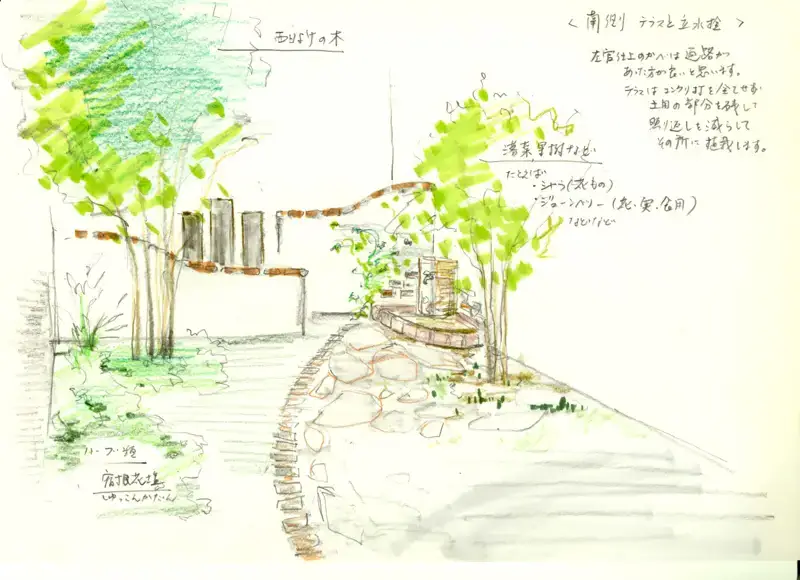 <南側 テラスと立水栓>
左官仕上のかべは
あった方が良いと思います。
テラスはコンクリ打を全てせず
土目の部分を残して
照り返しを減らして
その所に植栽します。
西日よけの木
落葉果樹など
たとえば
・シャラ(花もの)
・ジューンベリー(花・実・食用)
などなど
ハーブ類
宿根花壇
しゅっこんかだん